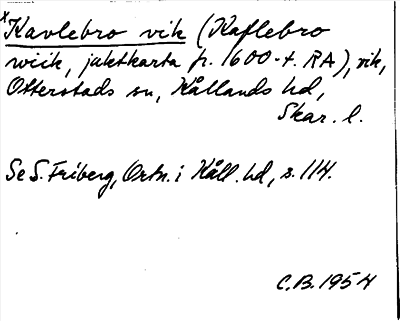 x Kavlebro vik (Kaflebro
wiik, jaktkarta fr. 1600-t. RA), vik,
Otterstads sn, Kållands hd,
Skar. l.
Se S. Friberg, Ortn. i Kåll. hd, s. 114.
C.B. 1954